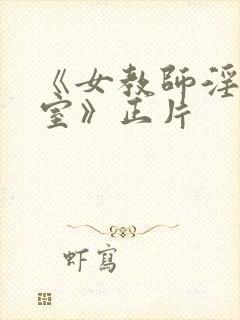 《女教师淫
室》正片
虾寫